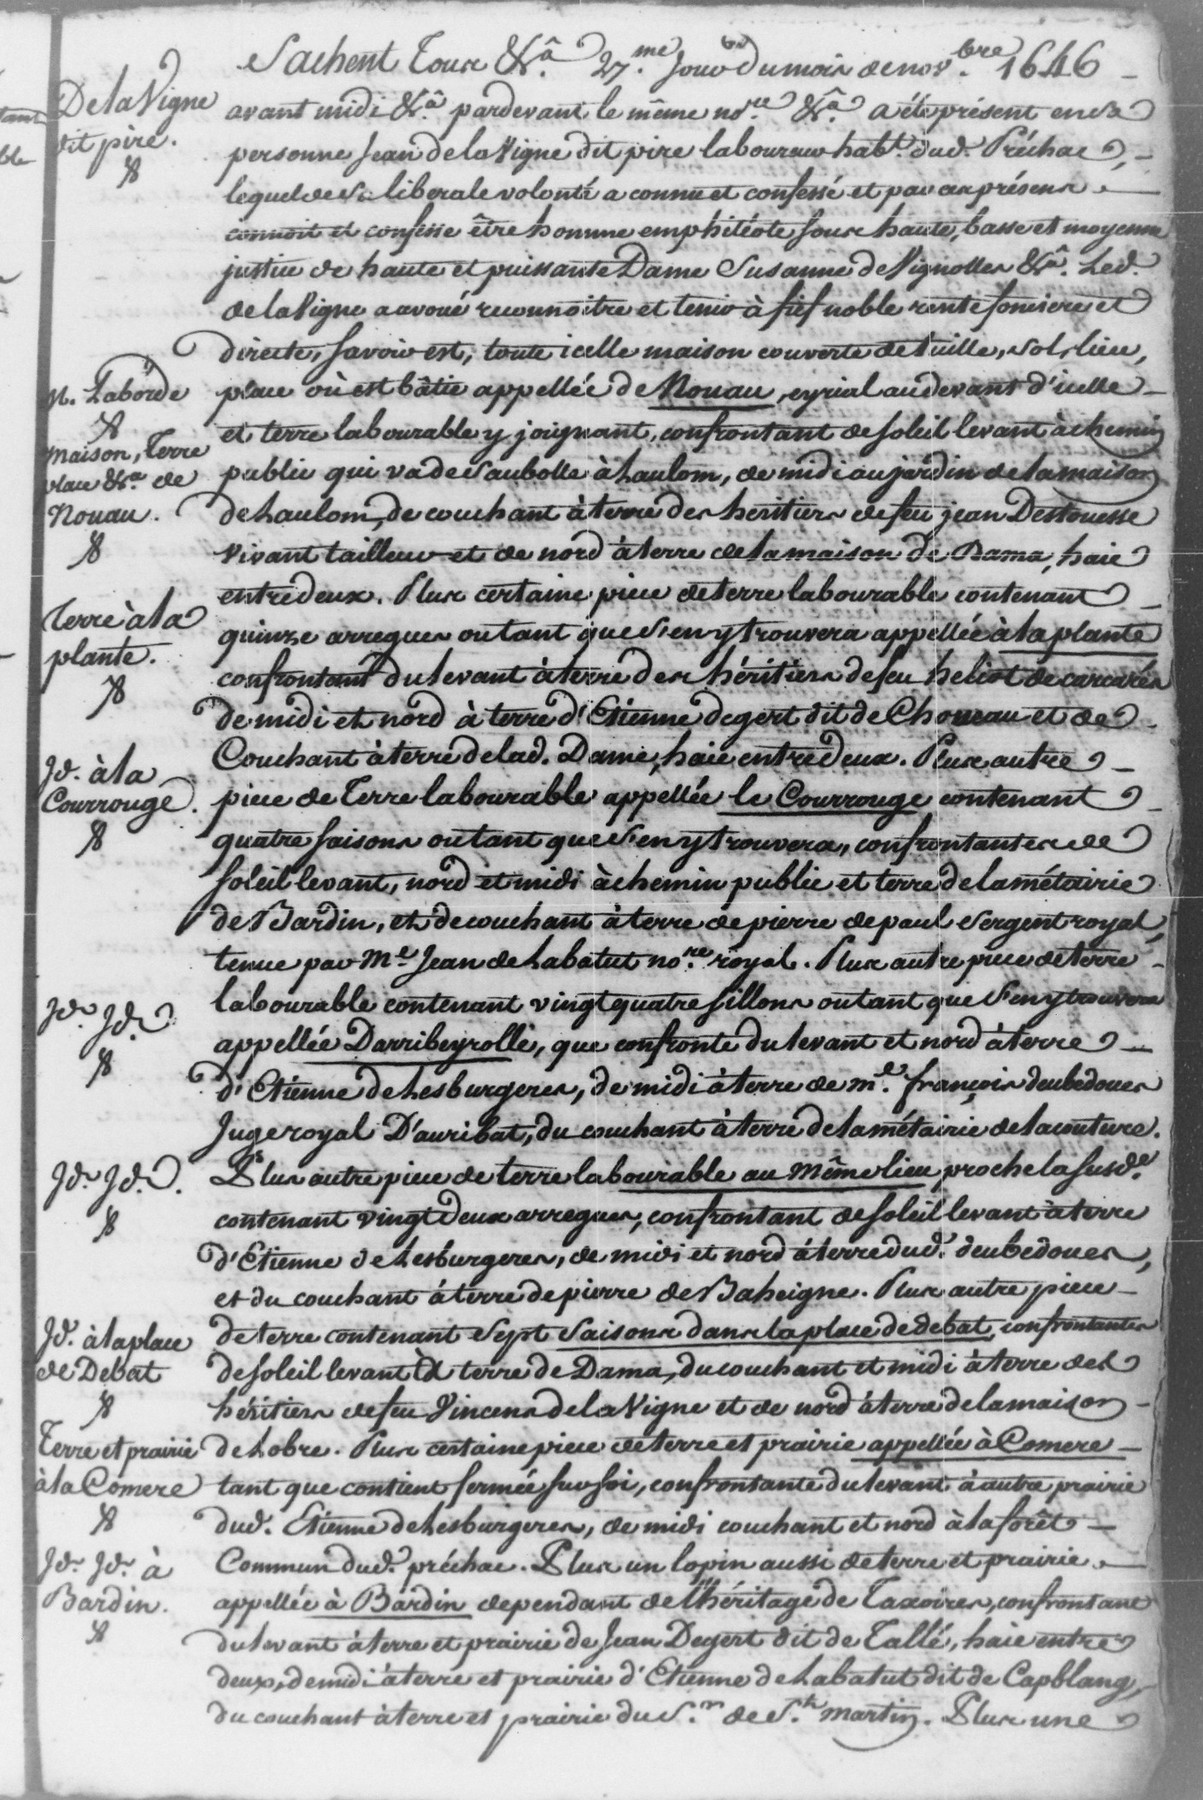 Sachent Tous &a. 27.me jour du mois de nov.bre 1646
De la Vigne
dit pire.
avant midi &a. pardevant le même no.re &a. a été présent en sa
personne Jean de la Vigne dit pire laboureur habt. dud. Préchac,
lequel de sa liberale volonté a connu et confessé et par ces présens
connoit et confesse être homme emphitéote sous haute, basse et moyenne
justice de haute et puissante Dame Susanne de Vignolles &a. Led.
de la Vigne a avoué reconnoitre et tenir à fief noble rente fonciere et
directe, savoir est, toute icelle maison couverte de tuille, sol, lieu,
M. Laborde
place où est bâtie appellée de Nouau, eyrial au devant d'icelle
et terre labourable y joignant, confrontant de soleil levant à chemin
Maison, Terre
place &a. de
Nouau.
public qui va de Saubolle à Laulom, de midi au jardin de la maison
de Laulom, de couchant à terre des héritiers de feu jean Destouesse
vivant tailleur et de nord à terre de la maison de Dama, haie
entredeux. Plus certaine piece de terre labourable contenant
Terre à la
plante.
quinze arregues ou tant que s'en y trouvera appellée à la plante
confrontant du levant à terre des héritiers de feu heliot de carcarés
de midi et nord à terre d'Etienne degert dit de Chouau et de
Couchant à terre de lad. Dame, haie entre deux. Plus autre
Id. à la
Courrouge.
piece de Terre labourable appellée le Courrouge contenant
quatre saisons ou tant que s'en y trouvera, confrontantes de
soleil levant, nord et midi à chemin public et terre de la métairie
de Bardin, et de couchant à terre de pierre de paul sergent royal,
tenue par M.e Jean de Labatut no.re royal. Plus autre piece de terre
Id. Id.
labourable contenant vingt quatre sillons ou tant que s'en y trouvera
appellée Darribeyrolle, que confronte du levant et nord à terre
d'Etienne de Lesburgeres, de midi à terre de m.e françois deubedoues
Juge royal D'auribat, du couchant à terre de la métairie de la couture.
Id. Id.
Plus autre piece de terre labourable au même lieu, proche la susd.e
contenant vingt deux arregues, confrontant de soleil levant à terre
d'Etienne de Lesburgeres, de midi et nord à terre dud. deubedoues,
et du couchant à terre de pierre de Baheigne. Plus autre piece
Id. à la place
de Debat
de terre contenant sept saisons dans la place de debat, confrontantes
de soleil levant à terre de Dama, du couchant et midi à terre des
héritiers de feu Vincens de la Vigne et de nord à terre de la maison
Terre et prairie
à la Comere
de Lobre. Plus certaine piece de terre et prairie appellée à Comere
tant que contient fermée sur soi, confrontante du levant à autre prairie
dud. Etienne de Lesburgeres, de midi couchant et nord à la forêt
Id. Id. à
Bardin.
Commun dud. préchac. Plus un lopin aussi de terre et prairie
appellée à Bardin dependant de l'héritage de Taxoires, confrontant
du levant à terre et prairie de Jean Degert dit de Tallé, haie entre
deux, de midi à terre et prairie d'Etienne de Labatut dit de Capblang,
du couchant à terre et prairie du S.r de S.t martin. Plus une